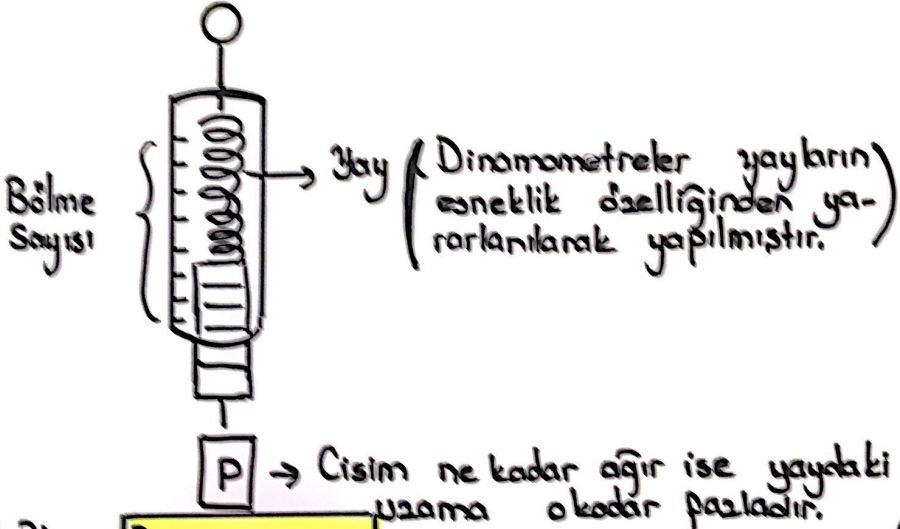 Bölme
Sayısı
Yay
(Dinamometreler yayların)
esneklik özelliğinden ya-
rarlanılarak yapılmıştır.
P → Cisim ne kadar ağır ise yaydaki
uzama okadar fazladır.